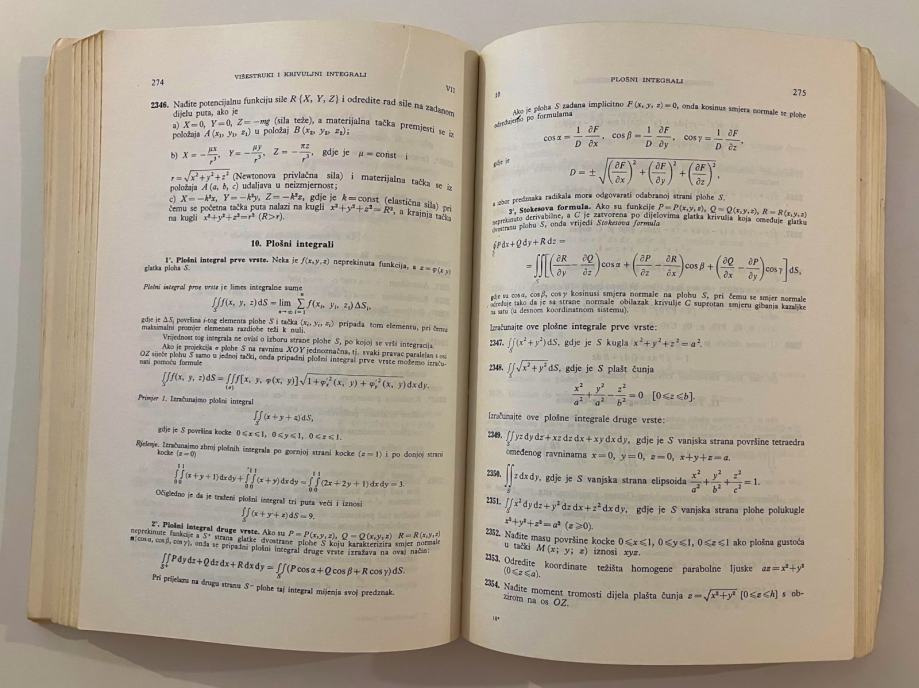 274
VIŠESTRUKI I KRIVULJNI INTEGRALI
VII
2346. Nađite potencijalnu funkciju sile R {X, Y, Z} i odredite rad sile na zadanom
dijelu puta, ako je
a) X=0, Y=0, Z=−mg (sila teže), a materijalna tačka premjesti se iz
položaja A (x₁, y₁, z₁) u položaj B (x₂, y₂, z₂);
b) X = −μx/r³, Y = −μy/r³, Z = −πz/r³, gdje je μ = const i
r = √x²+y²+z² (Newtonova privlačna sila) i materijalna tačka se iz
položaja A (a, b, c) udaljava u neizmjernost;
c) X=−k²x, Y=−k²y, Z=−k²z, gdje je k=const (elastična sila) pri
čemu se početna tačka puta nalazi na kugli x²+y²+z²=R², a krajnja tačka
na kugli x²+y²+z²=r² (R>r).
10. Plošni integrali
1°. Plošni integral prve vrste. Neka je f(x,y,z) neprekinuta funkcija, a z=φ(x y)
glatka ploha S.
Plošni integral prve vrste je limes integralne sume
∬f(x, y, z) dS = lim Σ f(xᵢ, yᵢ, zᵢ) ΔSᵢ,
S n→∞ i=1 n
gdje je ΔSᵢ površina i-tog elementa plohe S i tačka (xᵢ, yᵢ, zᵢ) pripada tom elementu, pri čemu
maksimalni promjer elemenata razdiobe teži k nuli.
Vrijednost tog integrala ne ovisi o izboru strane plohe S, po kojoj se vrši integracija.
Ako je projekcija σ plohe S na ravninu XOY jednoznačna, tj. svaki pravac paralelan s osi
OZ siječe plohu S samo u jednoj tački, onda pripadni plošni integral prve vrste možemo izraču-
nati pomoću formule
∬f(x, y, z) dS = ∬f[x, y, φ(x, y)] √1+φ′ₓ² (x, y) + φ′ᵧ² (x, y) dx dy.
S (σ)
Primjer 1. Izračunajmo plošni integral
∬(x+y+z) dS,
S
gdje je S površina kocke 0⩽x⩽1, 0⩽y⩽1, 0⩽z⩽1.
Rješenje. Izračunajmo zbroj plošnih integrala po gornjoj strani kocke (z=1) i po donjoj strani
kocke (z=0)
∫₀¹∫₀¹(x+y+1) dx dy + ∫₀¹∫₀¹(x+y) dx dy = ∫₀¹∫₀¹(2x+2y+1) dx dy = 3.
Očigledno je da je traženi plošni integral tri puta veći i iznosi
∬(x+y+z) dS = 9.
S
2°. Plošni integral druge vrste. Ako su P=P(x,y,z), Q=Q(x,y,z) R=R(x,y,z)
neprekinute funkcije a S⁺ strana glatke dvostrane plohe S koju karakterizira smjer normale
n{cosα, cosβ, cosγ}, onda se pripadni plošni integral druge vrste izražava na ovaj način:
∬P dy dz+Q dz dx+R dx dy = ∬(P cosα+Q cosβ+R cosγ) dS.
S⁺ S
Pri prijelazu na drugu stranu S⁻ plohe taj integral mijenja svoj predznak.
10
PLOŠNI INTEGRALI
275
Ako je ploha S zadana implicitno F(x, y, z) = 0, onda kosinus smjera normale te plohe
određujemo po formulama
cosα = 1/D ∂F/∂x, cosβ = 1/D ∂F/∂y, cosγ = 1/D ∂F/∂z,
gdje je
D = ± √(∂F/∂x)² + (∂F/∂y)² + (∂F/∂z)²,
a izbor predznaka radikala mora odgovarati odabranoj strani plohe S.
3°. Stokesova formula. Ako su funkcije P=P(x,y,z), Q=Q(x,y,z), R=R(x,y,z)
neprekinuto derivabilne, a C je zatvorena po dijelovima glatka krivulja koja omeđuje glatku
dvostranu plohu S, onda vrijedi Stokesova formula
∮P dx+Q dy+R dz =
C
= ∬[(∂R/∂y − ∂Q/∂z) cosα + (∂P/∂z − ∂R/∂x) cosβ + (∂Q/∂x − ∂P/∂y) cosγ] dS,
S
gdje su cosα, cosβ, cosγ kosinusi smjera normale na plohu S, pri čemu se smjer normale
određuje tako da je sa strane normale obilazak krivulje C suprotan smjeru gibanja kazaljke
na satu (u desnom koordinatnom sistemu).
Izračunajte ove plošne integrale prve vrste:
2347. ∬(x²+y²) dS, gdje je S kugla x²+y²+z²=a².
S
2348. ∬√x²+y² dS, gdje je S plašt čunja
S
x²/a² + y²/a² − z²/b² = 0 [0⩽z⩽b].
Izračunajte ove plošne integrale druge vrste:
2349. ∬yz dy dz+xz dz dx+xy dx dy, gdje je S vanjska strana površine tetraedra
S
omeđenog ravninama x=0, y=0, z=0, x+y+z=a.
2350. ∬z dx dy, gdje je S vanjska strana elipsoida x²/a² + y²/b² + z²/c² = 1.
S
2351. ∬x² dy dz+y² dz dx+z² dx dy, gdje je S vanjska strana plohe polukugle
S
x²+y²+z²=a² (z⩾0).
2352. Nađite masu površine kocke 0⩽x⩽1, 0⩽y⩽1, 0⩽z⩽1 ako plošna gustoća
u tački M(x; y; z) iznosi xyz.
2353. Odredite koordinate težišta homogene parabolne ljuske az=x²+y²
(0⩽z⩽a).
2354. Nađite moment tromosti dijela plašta čunja z=√x²+y² [0⩽z⩽h] s ob-
zirom na os OZ.
18*